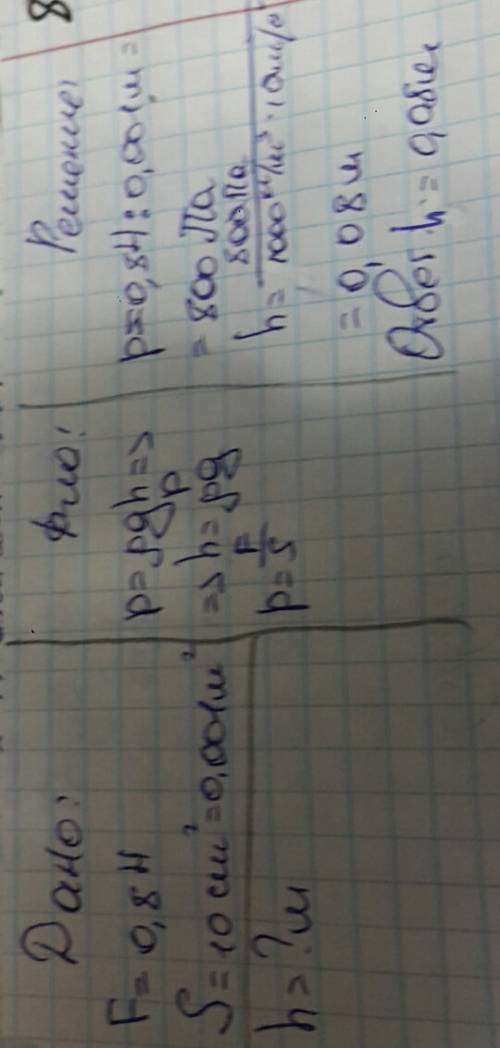 8
Дано:
F = 0,8 Н
S = 10 см² = 0,001 м²
h = ? м
p = ρgh =>
=> h = p
ρg
p = F
S
Решение:
p = 0,8 Н : 0,001 м =
= 800 Па
h = 800 Па
1000 кг/м³ · 10 м/с²
= 0,08 м
Ответ: h = 0,08 м